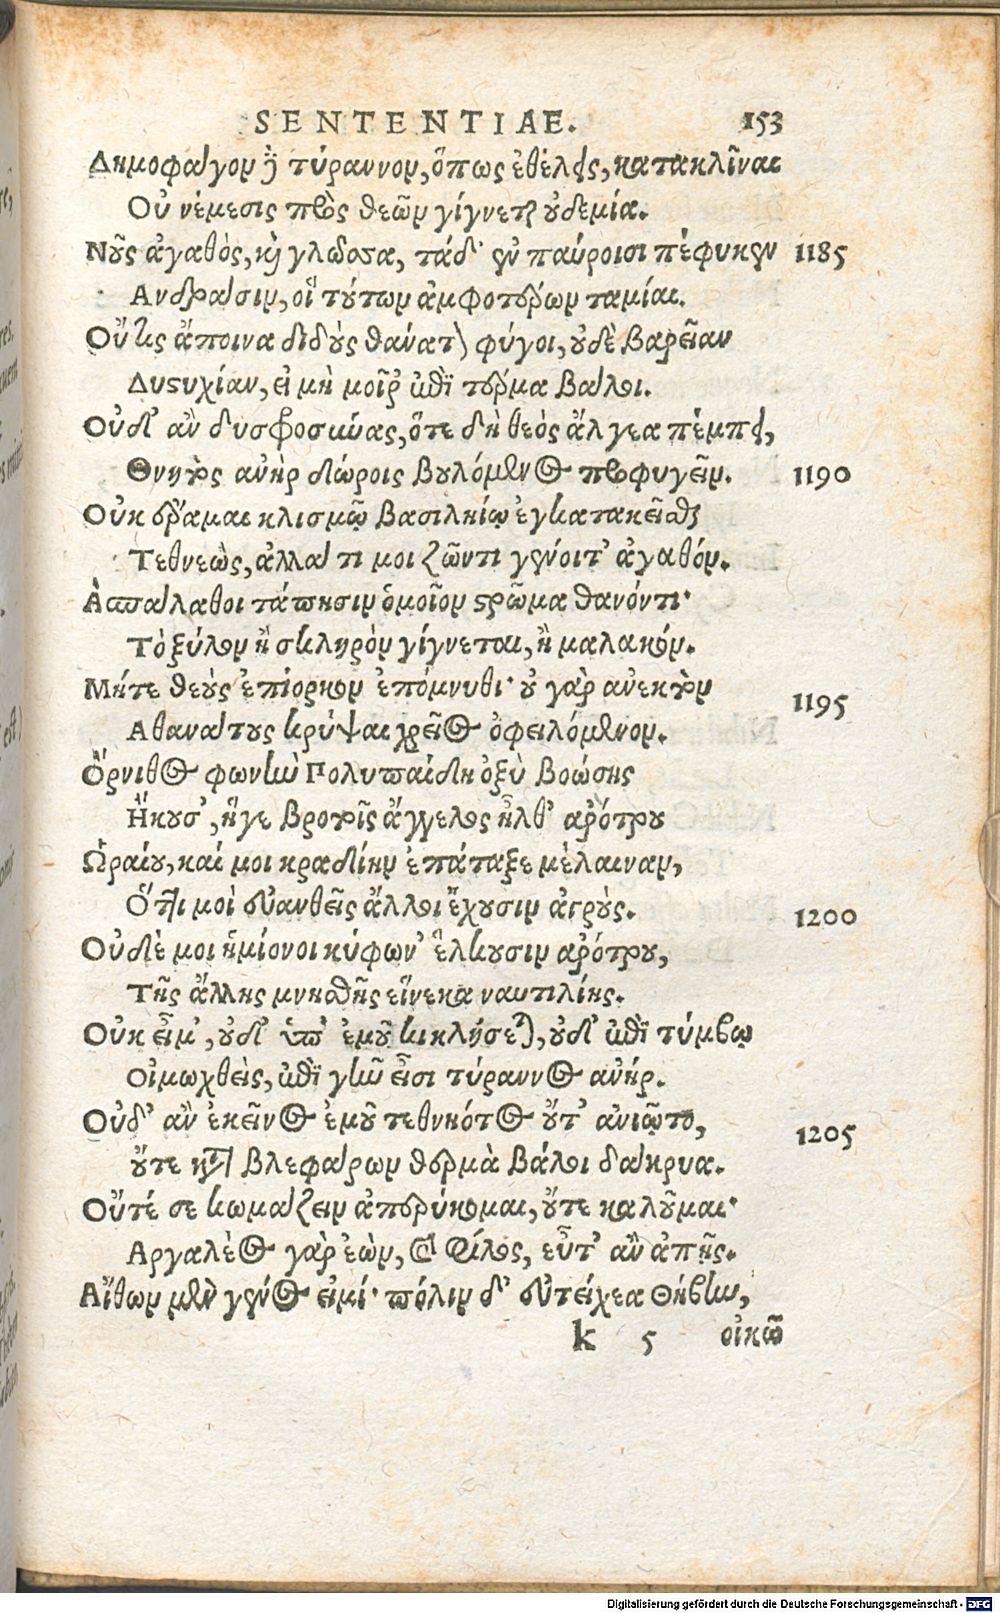 SENTENTIAE. 153
Δημοφάγον δὲ τύραννον, ὅπως ἐθέλεις, κατακλῖναι
Οὐ νέμεσις πρὸς θεῶν γίγνεται οὐδεμία.
Νοῦς ἀγαθὸς, καὶ γλῶσσα, τάδ' ἐν παύροισι πέφυκεν 1185
Ανδράσιν, οἳ τούτων ἀμφοτέρων ταμίαι.
Οὔτις ἄποινα διδοὺς θάνατον φύγοι, οὐδὲ βαρεῖαν
Δυστυχίαν, εἰ μὴ μοῖρ' ἐπὶ τέρμα βάλοι.
Οὐδ' ἂν δυσφροσύνας, ὅτε δὴ θεὸς ἄλγεα πέμπει,
Θνητὸς ἀνὴρ δώροις βουλόμενος προφυγεῖν. 1190
Οὐκ ἔραμαι κλισμῷ βασιληίῳ ἐγκατακεῖσθαι
Τεθνεὼς, ἀλλά τι μοι ζῶντι γένοιτ' ἀγαθόν.
Ἀσπάλαθοι τάπησιν ὁμοῖον στρῶμα θανόντι·
Τὸ ξύλον ἢ σκληρὸν γίγνεται, ἢ μαλακόν.
Μήτε θεοὺς ἐπίορκον ἐπόμνυθι· οὐ γὰρ ἀνεκτὸν 1195
Αθανάτους κρύψαι χρεῖος ὀφειλόμενον.
Ὄρνιθος φωνὴν Πολυπαίδη ὀξὺ βοώσης
Ἤκουσ', ἥγε βροτοῖς ἄγγελος ἦλθ' ἀρότρου
Ὡραίου, καί μοι κραδίην ἐπάταξε μέλαιναν,
Ὅττι μοὶ εὐανθεῖς ἄλλοι ἔχουσιν ἀγρούς. 1200
Οὐδέ μοι ἡμίονοι κύφων' ἕλκουσιν ἀρότρου,
Τῆς ἄλλης μνηστῆς εἵνεκα ναυτιλίης.
Οὐκ εἶμ', οὐδ' ὑπ' ἐμοῦ κικλήσεται, οὐδ' ἐπὶ τύμβῳ
Οἰμωχθεὶς, ἐπὶ γῆν εἶσι τύραννος ἀνήρ.
Οὐδ' ἂν ἐκεῖνος ἐμοῦ τεθνηκότος οὔτ' ἀνιῷτο, 1205
οὔτε κατὰ βλεφάρων θερμὰ βάλοι δάκρυα.
Οὔτέ σε κωμάζειν ἀπερύκομαι, οὔτε καλοῦμαι·
Αργαλέος γὰρ ἐὼν, καὶ φίλος, εὖτ' ἂν ἀπῇς.
Αἴθων μὲν γένος εἰμί· πόλιν δ' εὐτείχεα Θήβην,
k 5 οἰκῶ
Digitalisierung gefördert durch die Deutsche Forschungsgemeinschaft - DFG